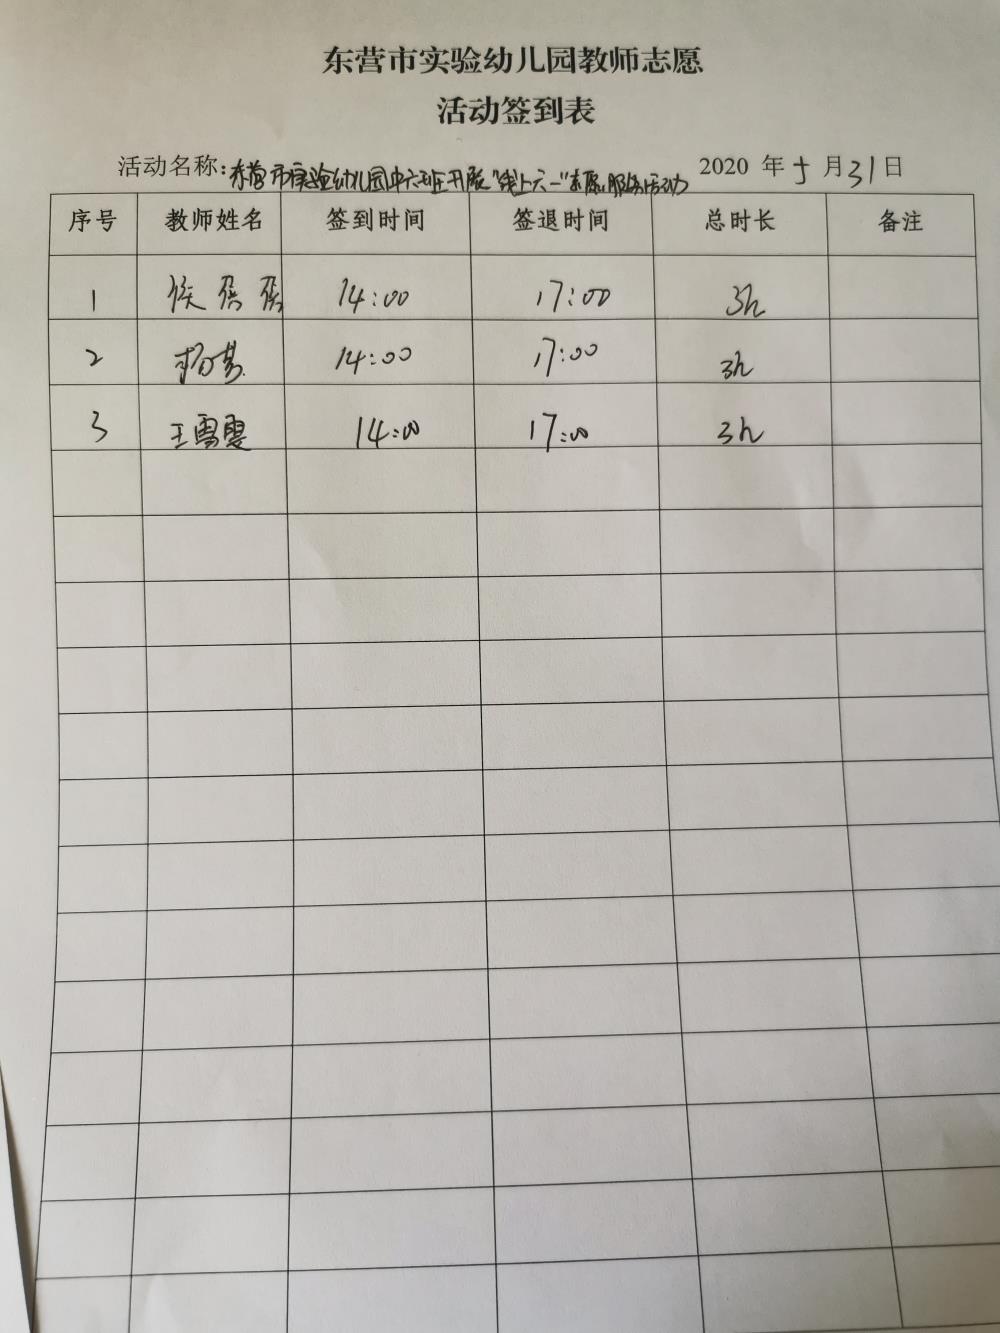 东营市实验幼儿园教师志愿
活动签到表
活动名称:东营市实验幼儿园中六班开展“线上六一”志愿服务活动 2020 年 5 月 31 日
序号 教师姓名 签到时间 签退时间 总时长 备注
1 侯蓓蓓 14:00 17:00 3h
2 杨 14:00 17:00 3h
3 王雪雯 14:00 17:00 3h